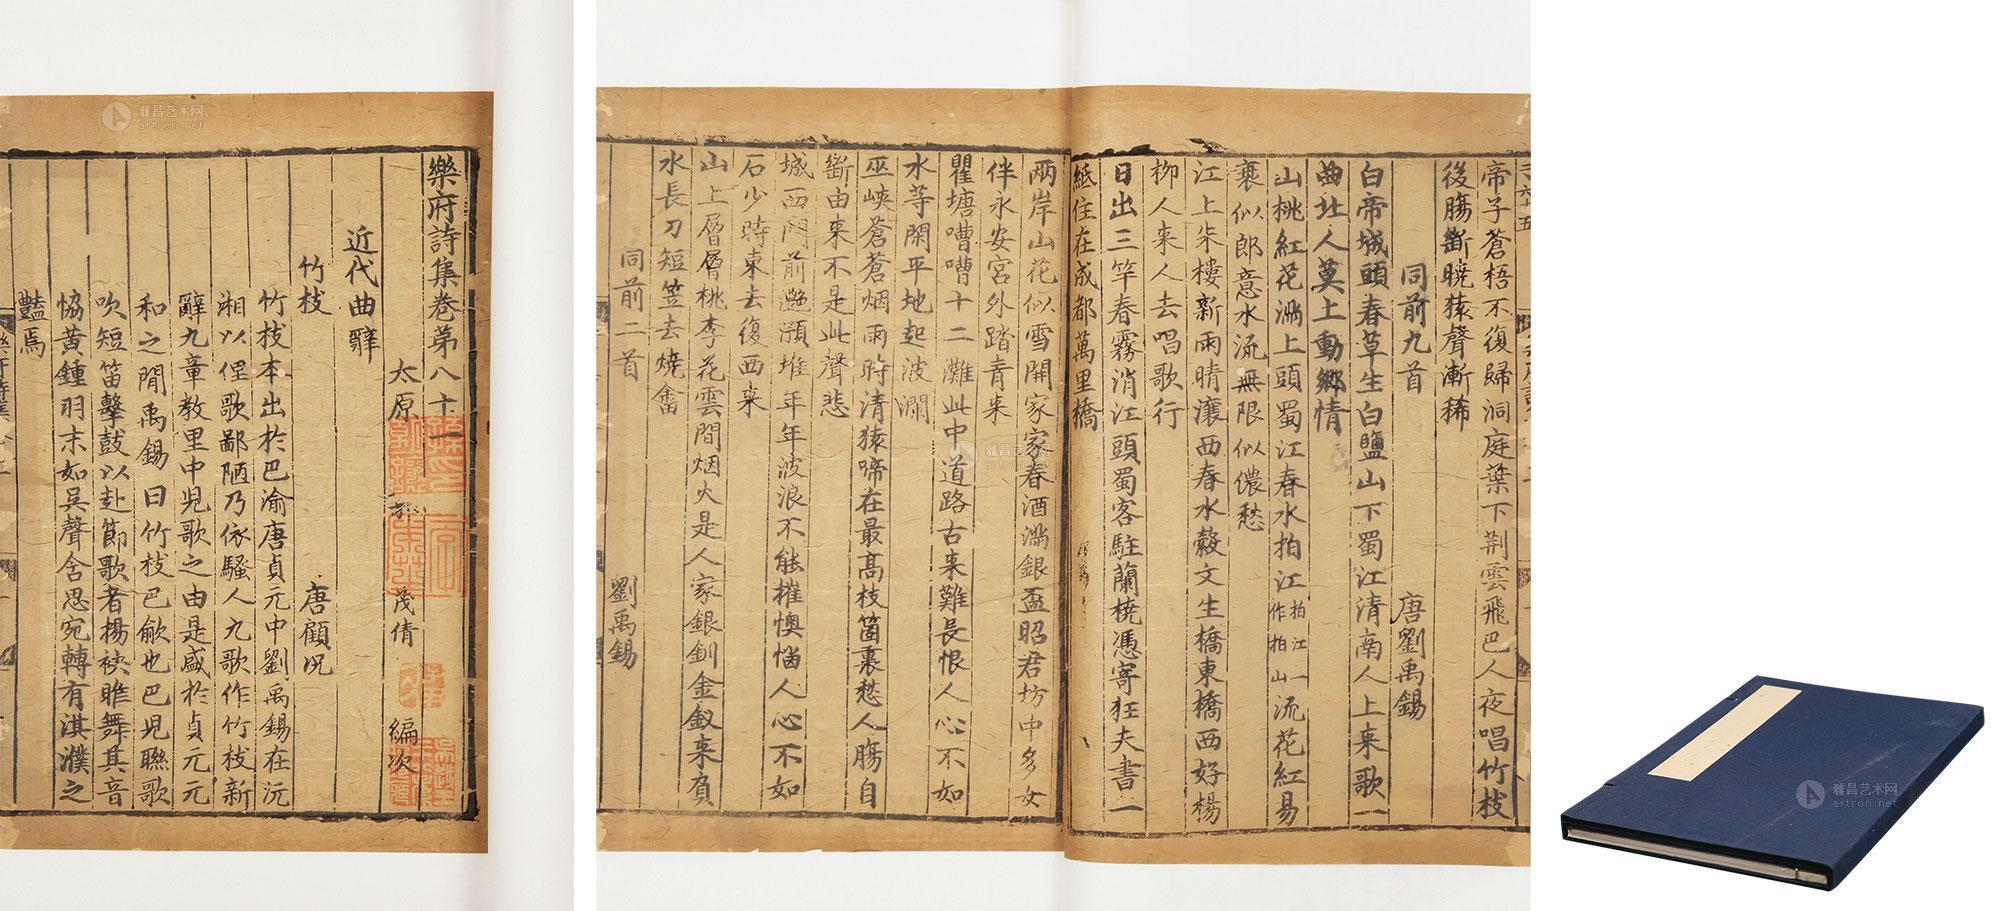 樂府詩集卷苐八十一
太原
茂倩
編次
近代曲辭
竹枝
唐顧況
竹枝本出於巴渝唐貞元中劉禹錫在沅
湘以俚歌鄙陋乃依騷人九歌作竹枝新
辭九章教里中児歌之由是盛於貞元元
和之間禹錫曰竹枝巴歈也巴児聯歌
吹短笛擊鼓以赴節歌者揚袂睢舞其音
恊黄鍾羽末如吳聲含思宛轉有淇濮之
豔焉
帝子蒼梧不復歸洞庭葉下荆雲飛巴人夜唱竹枝
後腸斷曉猿聲漸稀
同前九首
唐劉禹錫
白帝城頭春草生白鹽山下蜀江清南人上来歌一
曲北人莫上動鄉情
山桃紅花滿上頭蜀江春水拍江拍江一作拍山流花紅易
衰似郎意水流無限似儂愁
江上朱樓新雨晴瀼西春水縠文生橋東橋西好楊
柳人来人去唱歌行
日出三竿春霧消江頭蜀客駐蘭橈憑寄狂夫書一
紙住在成都萬里橋
兩岸山花似雪開家家春酒滿銀盃昭君坊中多女
伴永安宫外踏青来
瞿塘嘈嘈十二灘此中道路古来難長恨人心不如
水等閑平地起波瀾
巫峽蒼蒼烟雨時清猿啼在最髙枝箇裏愁人腸自
斷由来不是此聲悲
城西門前灧澦堆年年波浪不能摧懊惱人心不如
石少時東去復西来
山上層層桃李花雲間烟火是人家銀釧金釵来負
水長刀短笠去燒畬
同前二首
劉禹錫
雅昌艺术网
artron.net
雅昌艺术网
artron.net
雅昌艺术网
artron.net